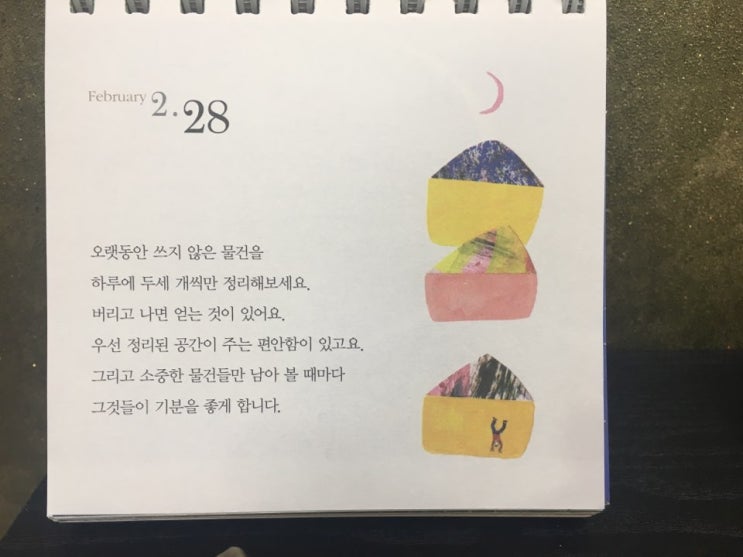 February 2.28
오랫동안 쓰지 않은 물건을
하루에 두세 개씩만 정리해보세요.
버리고 나면 얻는 것이 있어요.
우선 정리된 공간이 주는 편안함이 있고요.
그리고 소중한 물건들만 남아 볼 때마다
그것들이 기분을 좋게 합니다.